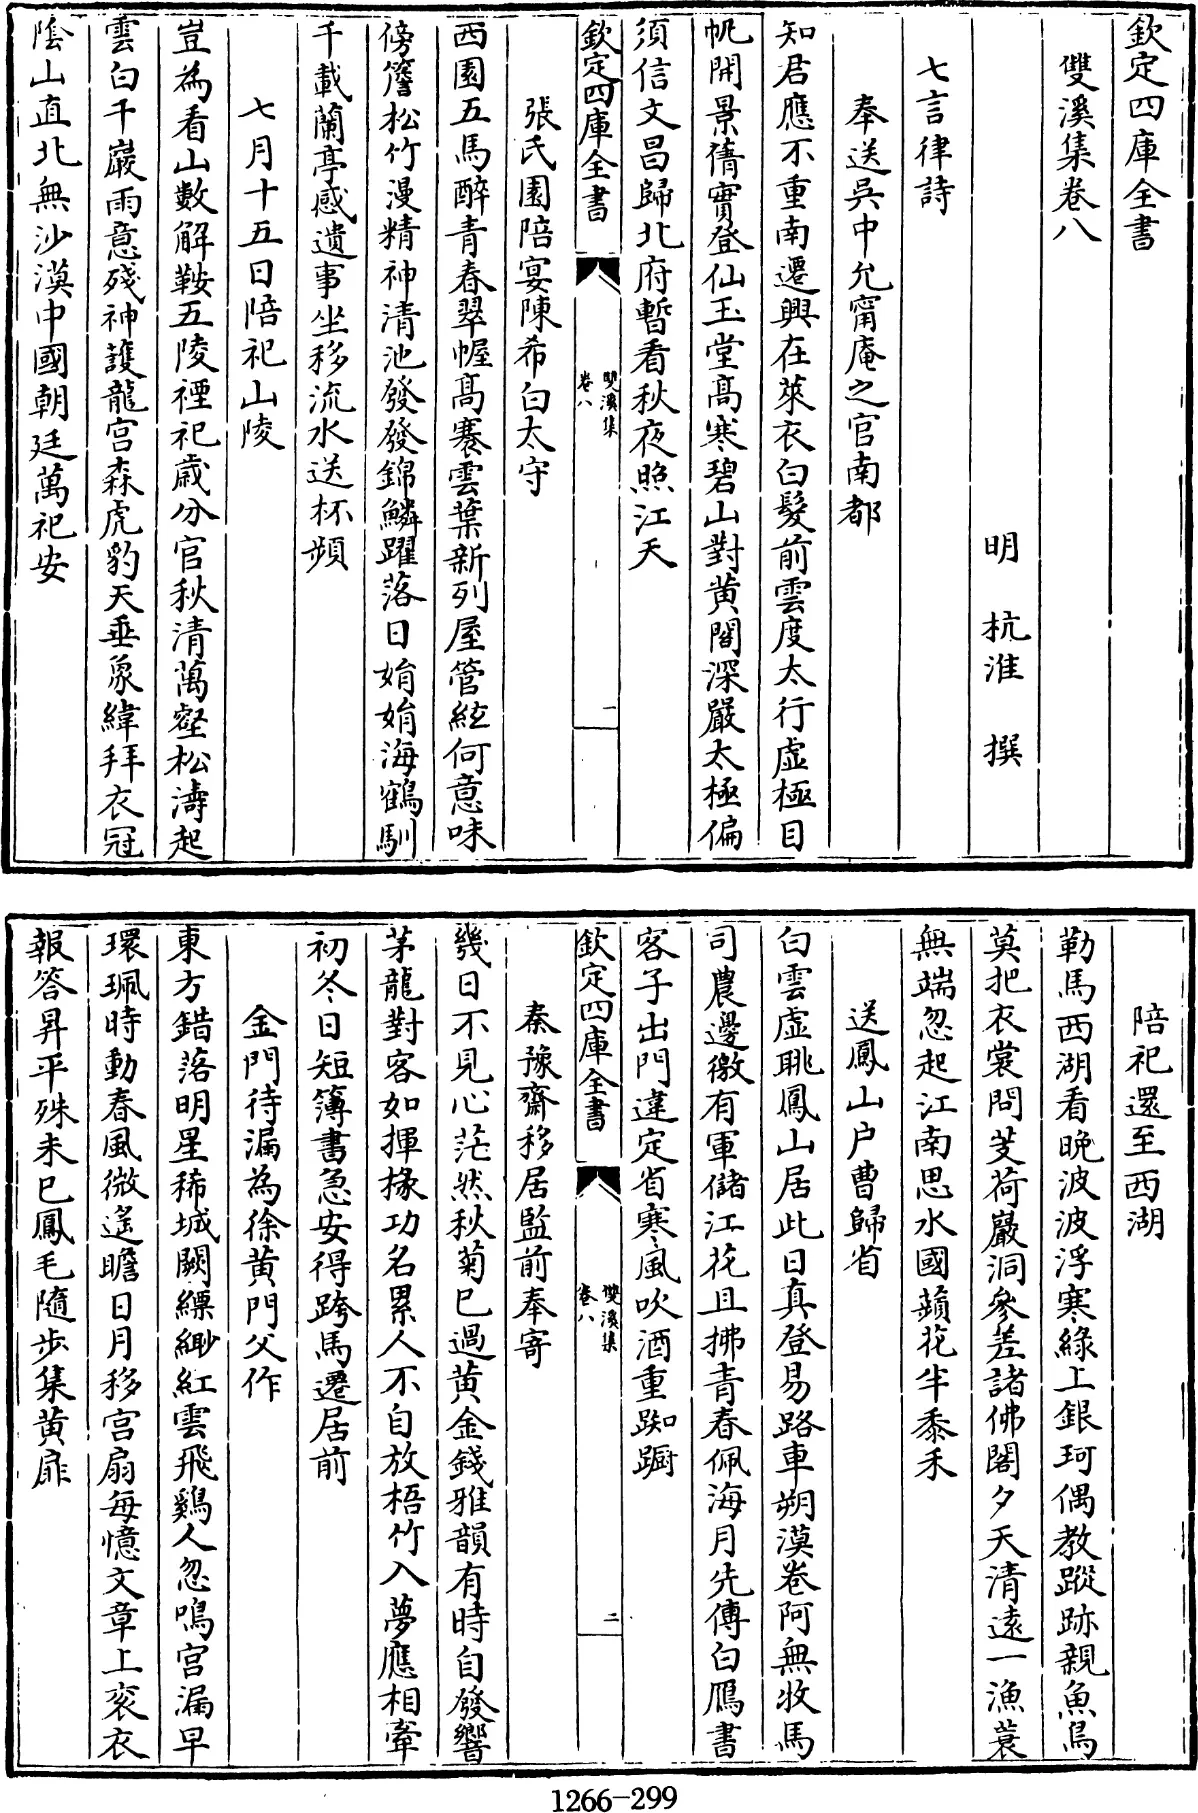 欽定四庫全書
雙溪集卷八
明　杭淮　撰
七言律詩
奉送吳中允甯庵之官南都
知君應不重南遷興在萊衣白髮前雲度太行虛極目
帆開景㣥實登仙玉堂高寒碧山對黃閣深嚴太極偏
須信文昌歸北府暫看秋夜照江天
欽定四庫全書
雙溪集
卷八
一
張氏園陪宴陳希白太守
西園五馬醉青春翠幄高褰雲葉新列屋管絃何意味
傍簷松竹漫精神清池發發錦鱗躍落日娟娟海鶴馴
千載蘭亭感遺事坐移流水送杯頻
七月十五日陪祀山陵
豈為看山數解鞍五陵禋祀歲分官秋清萬壑松濤起
雲白千巖雨意殘神護龍宮森虎豹天垂象緯拜衣冠
陰山直北無沙漠中國朝廷萬祀安
陪祀還至西湖
勒馬西湖看晚波波浮寒綠上銀珂偶教蹤跡親魚鳥
莫把衣裳問芰荷巖洞參差諸佛閣夕天清遠一漁蓑
無端忽起江南思水國蘋花半黍禾
送鳳山户曹歸省
白雲虛眺鳳山居此日真登易路車朔漠卷阿無牧馬
司農邊徼有軍儲江花且拂青春佩海月先傳白鴈書
客子出門違定省寒風吹酒重踟躕
欽定四庫全書
雙溪集
卷八
二
秦豫齋移居監前奉寄
幾日不見心茫然秋菊已過黃金錢雅韻有時自發響
茅龍對客如揮椽功名累人不自放梧竹入夢應相牽
初冬日短簿書急安得跨馬遷居前
金門待漏為徐黃門父作
東方錯落明星稀城闕縹緲紅雲飛鷄人忽鳴宮漏早
環珮時動春風微遙瞻日月移宮扇每憶文章上衮衣
報答昇平殊未已鳳毛隨步集黃扉
1266-299